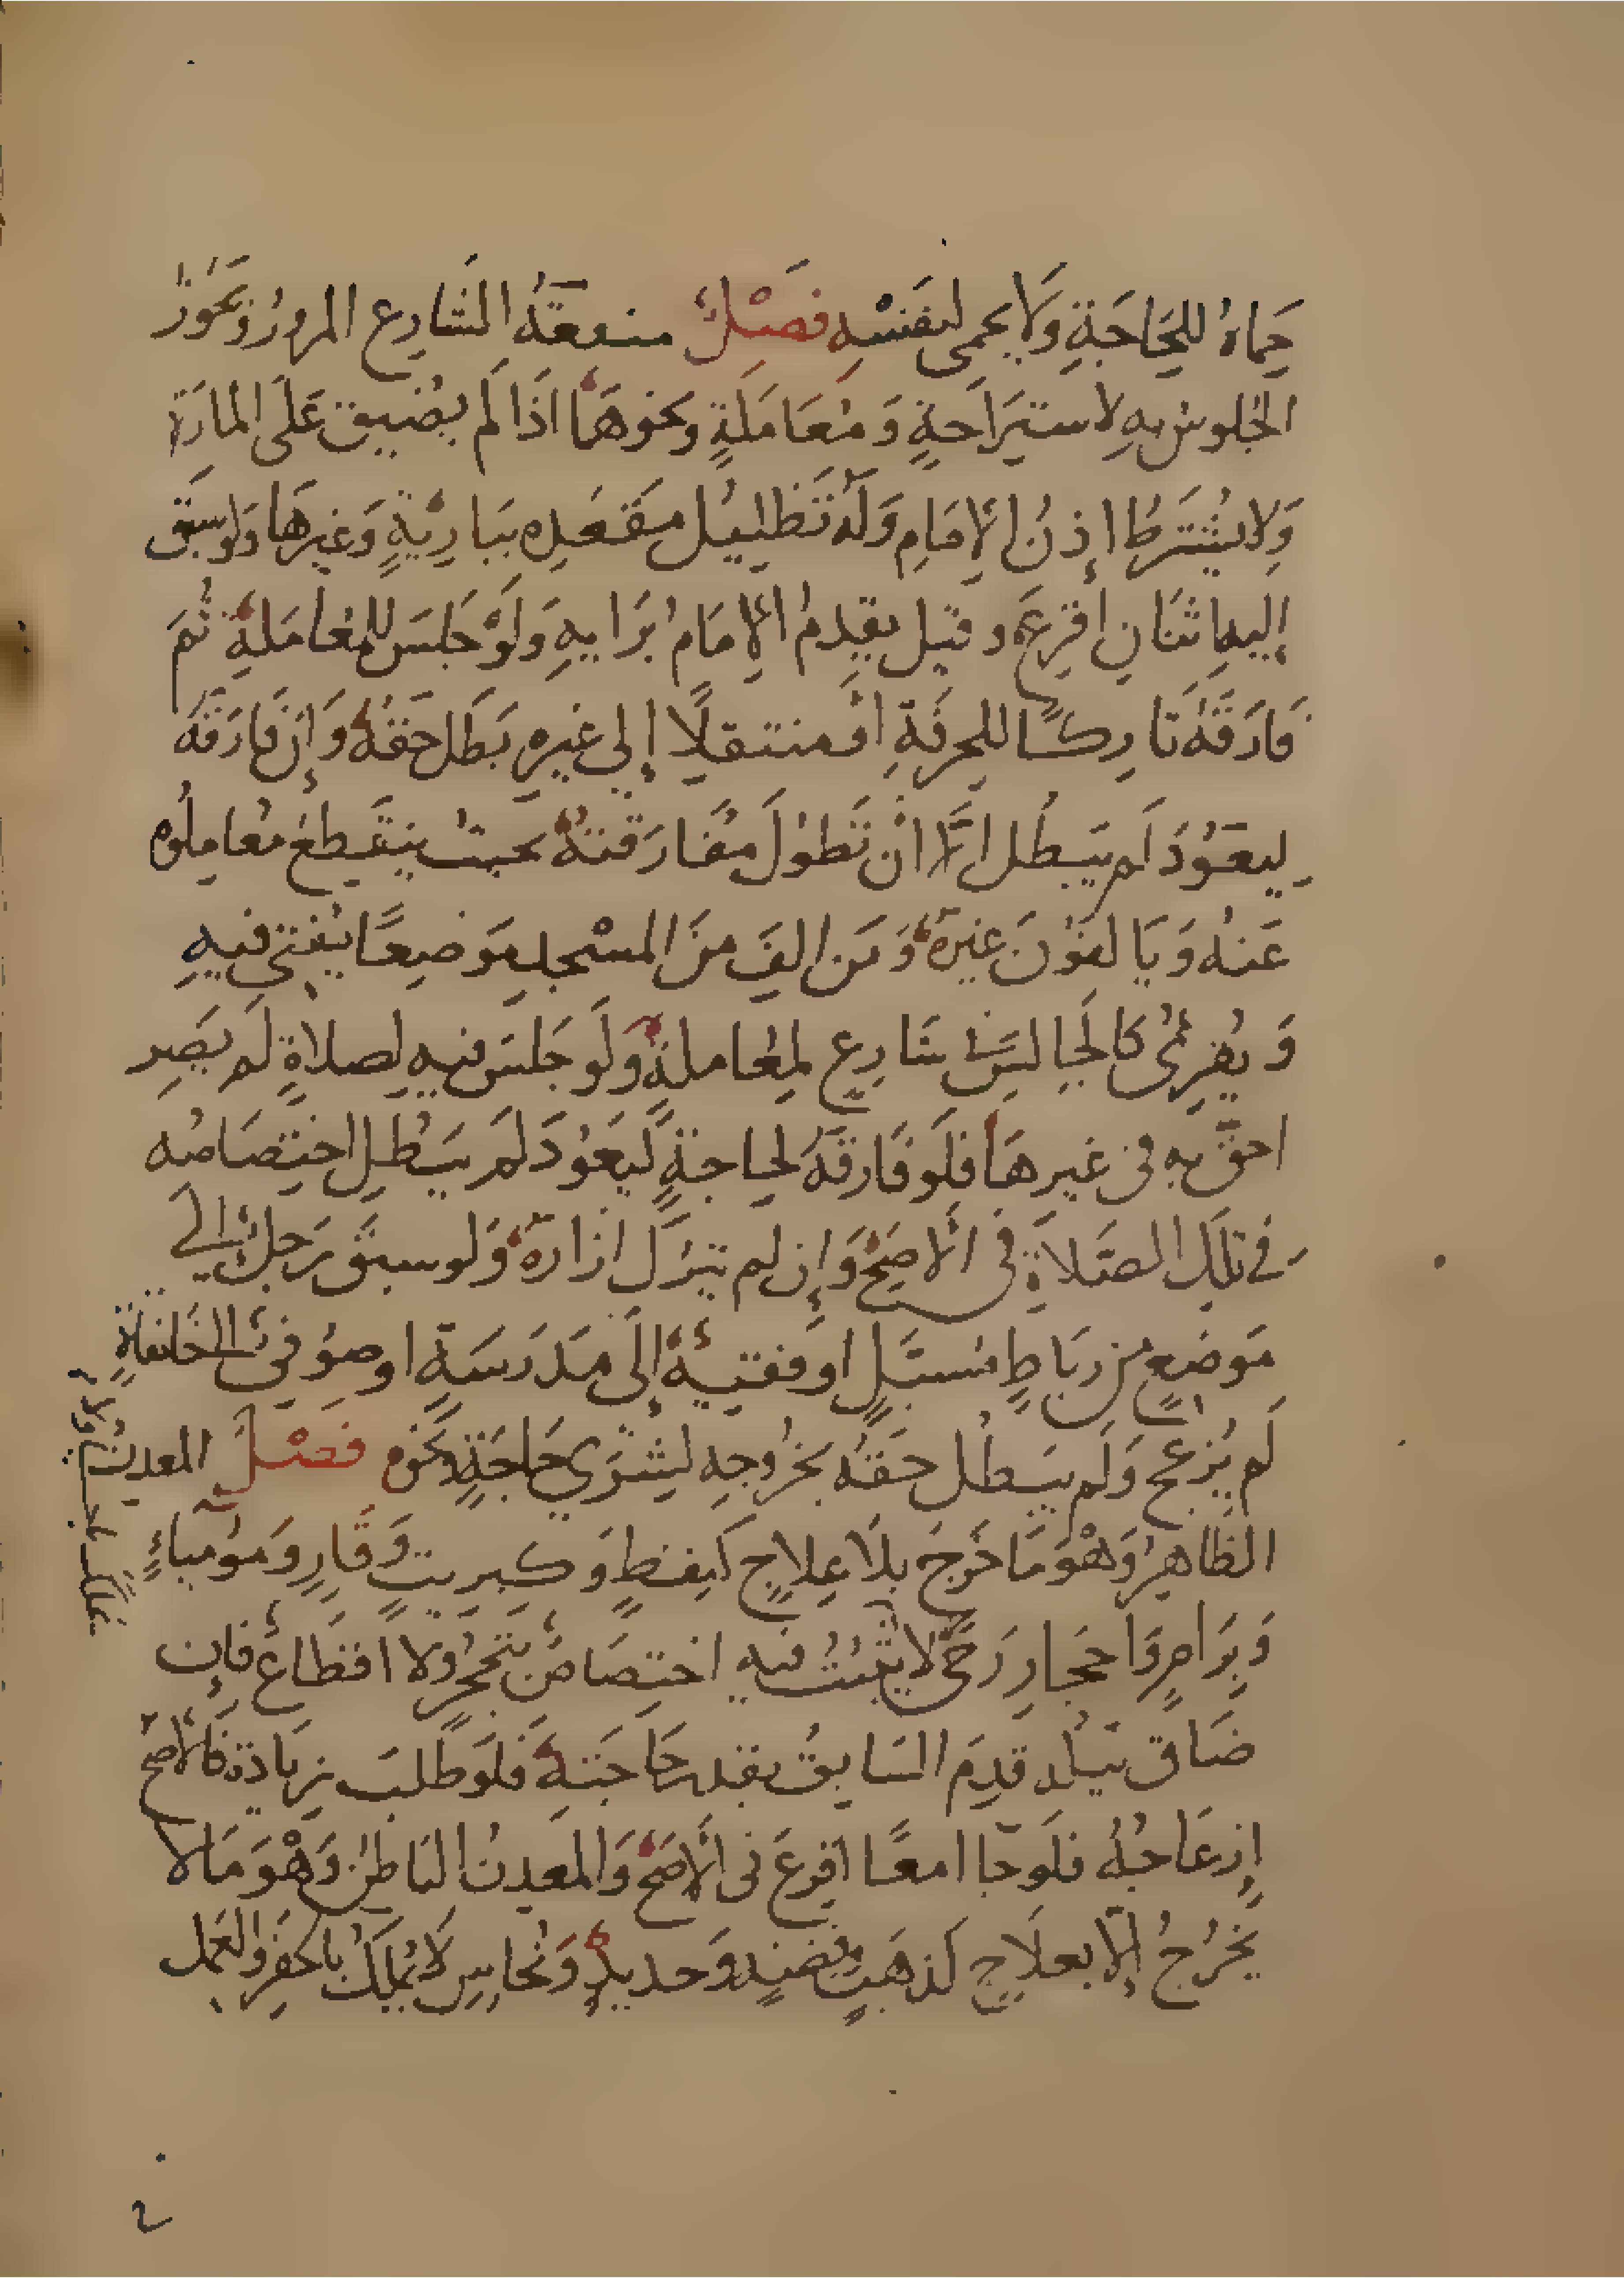 حَمَاهُ للحَاجَةِ وَلَا يحمى لنفَسْهِ فصْل منفعَةُ الشارِع المرورُ ويَجُوزُ
الجُلوسُ بهِ لاستِرَاحةٍ وَمُعَامَلَةٍ ونحوهَا اذَا لَم يُضَيِق عَلَى المارَة
وَلا يشْتَرطُ إذنُ الامَامِ وَلَهُ تَظليلُ مَقعَدِه ببَارِيَّةٍ وَغيرهَا وَلو سبَق
إليهِ اثنَانِ أقرِعَ وقيل يقدِمُ الإمَامُ برَايهِ وَلَوْ جَلسَ للمُعامَلةِ ثُمَ
فَارَقَهُ تَارِكًا للحِرفَةِ اوْ منتقلًا إلى غيرهِ بَطَل حَقهُ وَإن فارَقَهُ
ليعُودَ لَم يَبطُل الَّا انْ تَطوُلَ مُفارَقتهُ بحيثُ ينقَطِعُ مُعَامِلُوه
عَنهُ وَيَا لفوُنَ غيرَهُ وَمَن الفَ منَ المسْجدِ موَضِعًا يُفتي فيهِ
وَيُقرِئُ كالجَالسِ في شَارِعٍ لمعُاملةٍ وَلَو جَلسَ فيهِ لصلاةٍ لَم يَصِر
احقَّ بهِ في غيرهَا فلَو فَارقَهُ لحاجةٍ ليَعوُدَ لَم يَبطُل اختِصَاصُه
في تلكَ الصَلاةِ في الأصَحِ وَإن لم يترُك ازارَهُ وَلو سبَقَ رَجلٌ إلى
مَوضعٍ من ربَاطٍ مُسَبَّلٍ او فقيهٌ إلَى مَدرَسَةٍ اوصوُفيٌ الى خانقاهٍ
لَم يُزعَج وَلَم يَبطُل حَقهُ بخرُوجِه لشرَي حَاجَةٍ وَنحوِه فصْل المعدنُ
الظَاهِرُ وَهْوَ مَا خَرجَ بلَا عِلَاجٍ كنِفطٍ وَكبريتٍ وَقَارٍ وَموُميَاءٍ
وَبِرَامٍ وَاحجَارِ رَحًى لايَثبُتُ فيهِ اختِصَاصٌ بتَحَجُرٍ وَلا اقطَاعٌ فإن
ضَاقَ نيلُه قدِمَ السَابِقُ بقدرِ حَاجَتهِ فلَو طَلبَ زيَادةً فالأصَحُ
إزعَاجُهُ فلَو جَاا معًا اقرِعَ في الأصَحِ وَالمعدِنُ البَاطنُ وَهْوَ مَالا
يَخرُجُ إلَّا بعلَاجٍ كذهَبٍ وَفضةٍ وَحديدٍ وَنُحَاسٍ لَا يُملَكُ بالحَفرِ وَالعَمل